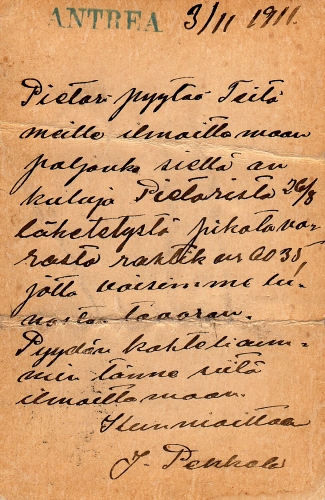 ANTREA 3/11 1911.
Pietari pyytää Teitä
meille ilmoittamaan
paljonko siellä on
kuluja Pietarista 26/8
lähetetystä pikatava-
rasta rahtik nr 6035,
jotta voisimme lu-
nastaa tavaran.
Pyydän kohteliaim-
min tänne siitä
ilmoittamaan.
Kunnioittaen
J. Pekkola